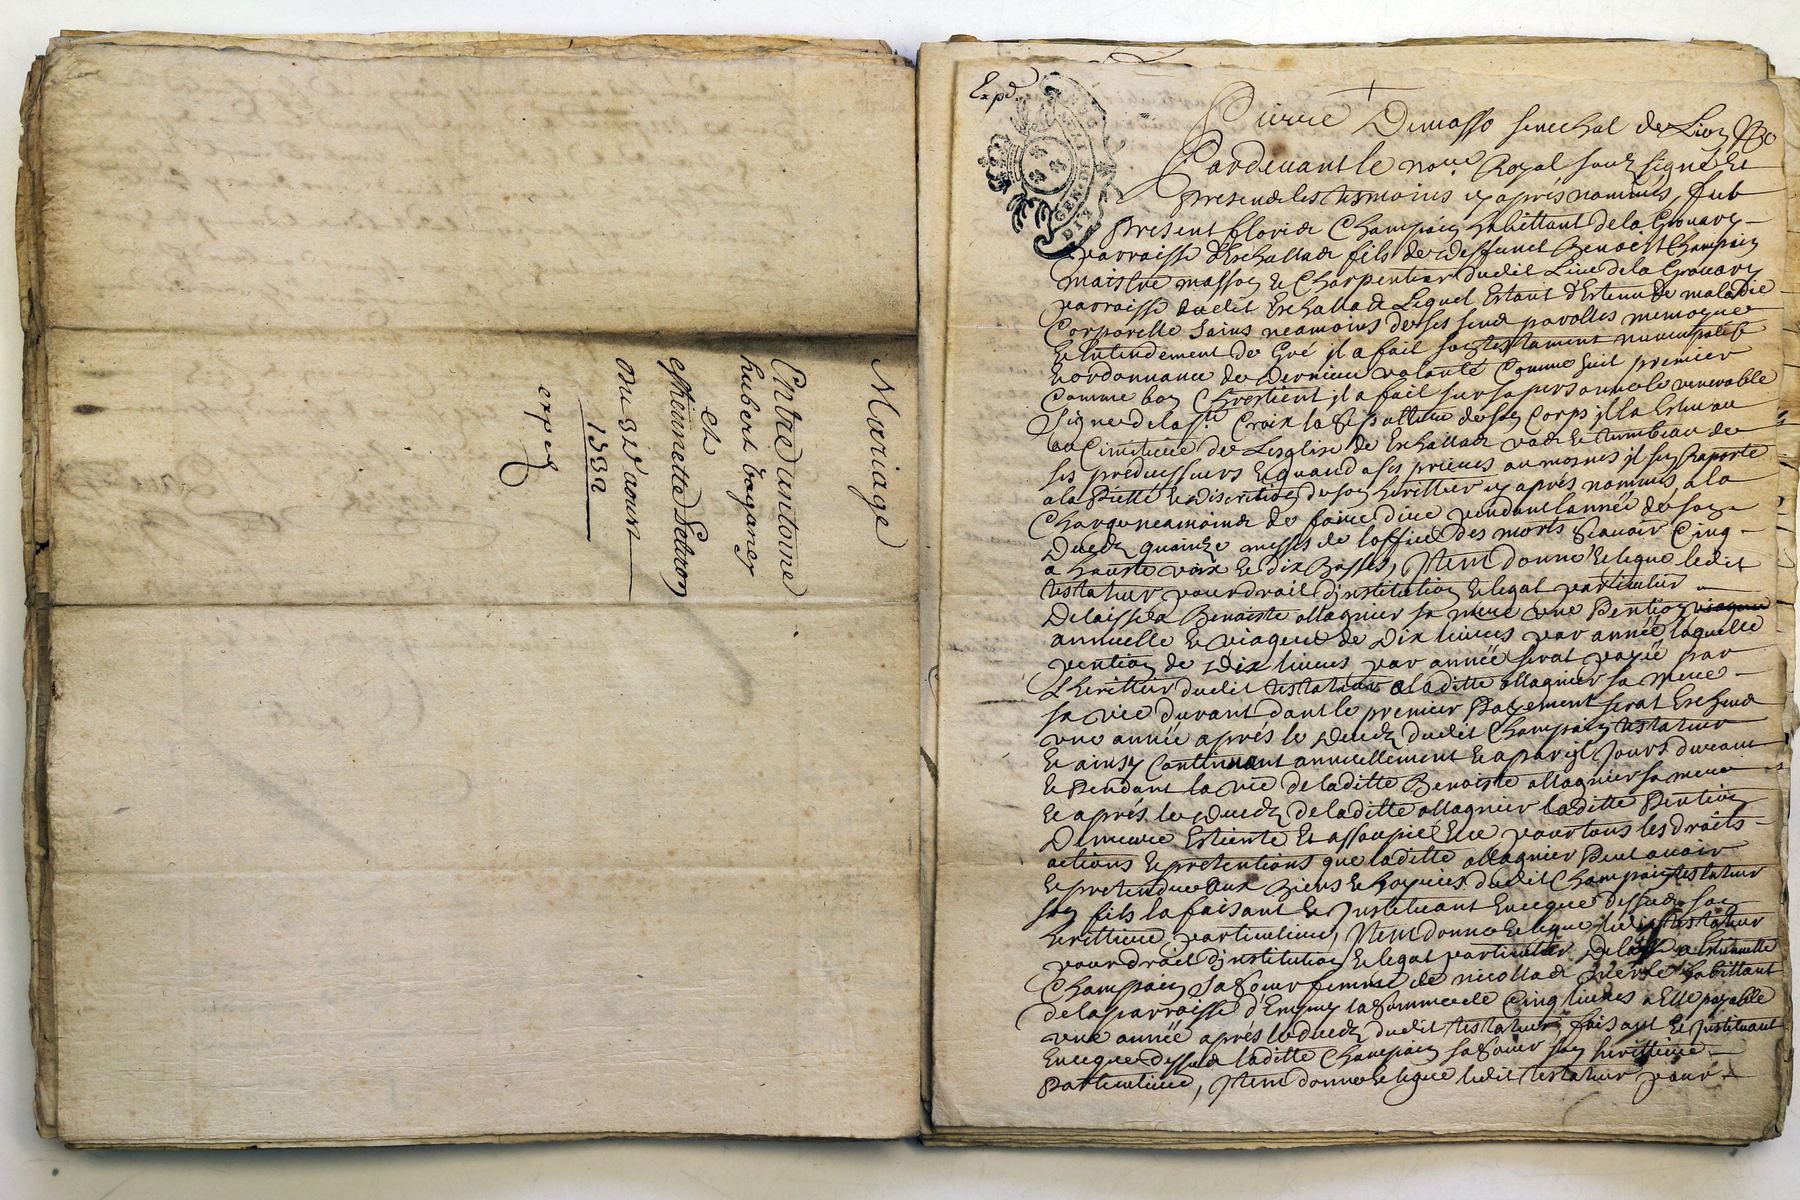 Mariage
Entre antoine
hubert
et
estiennette
du 31 d'aoust
1732
exped
Exped
GEN. DE
Pierre Dumasso senechal de Lion
Pardevant le nore. Royal souz signé et
presende les tesmoins cy aprés nommés, fut
present Champain habittant de la
parroisse d'Eschallad fils de deffunct Benoist Champain
maistre masson et Charpentier dudit Lieu de la
parroisse dudit Eschallad Lequel Estant d'Estenu de maladie
Corporelle sains neamoins de ses sens parolles memoyre
et Entendement de Gré il a fait son testament nuncupatif
et ordonnance de Derniere volanté Comme suit premier
Comme bon Chrestient il a fait sur sa personne le venerable
Signe de la Ste. Croix la sepulture de son Corps il la Esleu au
au Cimitiere de Lesglise de Eschallad vad et tumbeau de
ses predecesseurs et quand a ses prieres aumosnes il sen raporte
a la Pietté et discretion de son herittier cy aprés nommés a la
Charge neamoins de faire dire pendant lannéé de son
Deceds quainze messes de loffice des morts scavoir Cinq
a hauste voix et dix Basses, Item donne et legue ledit
testateur pour droit d'jnstitution et legat particulier
Delaisse a Benoiste allagnier sa mere une Pention
annuelle et viagere de Dix livres par année laquelle
pention de Dix livres par année serat payéé par
L'herittier dudit testateur a laditte allagnier sa mere
sa vie durant dont le premier Payement serat Escheud
une année aprés le Deceds dudit Champain testateur
Et ainsy Continuant annuellement et a pareil Jours durant
et Pendant la vie de laditte Benoiste allagnier sa mere
Et aprés le Deceds de laditte allagnier laditte Pention
Demeure Esteinte Et assoupié Et ce pour tous les droits
actions et pretentions que laditte allagnier Peut avoir
et pretendre aux Biens et hoyries dudit Champain testateur
son fils la faisant et Jnstituant Enceque dessud son
herittiere particuliere, Item donne et legue ledit testateur
pour droit d'jnstitution et legat particulier Delaisse a Estiennette
Champain sa sour femme de habittant
de la parroisse la somme de Cinq livres a Elle payable
une année aprés le deceds dudit testateur, faisant et Jnstituant
Encequedessud laditte Champain sa sour son herittiere
Particuliere, Item donne et legue ledit testateur pour